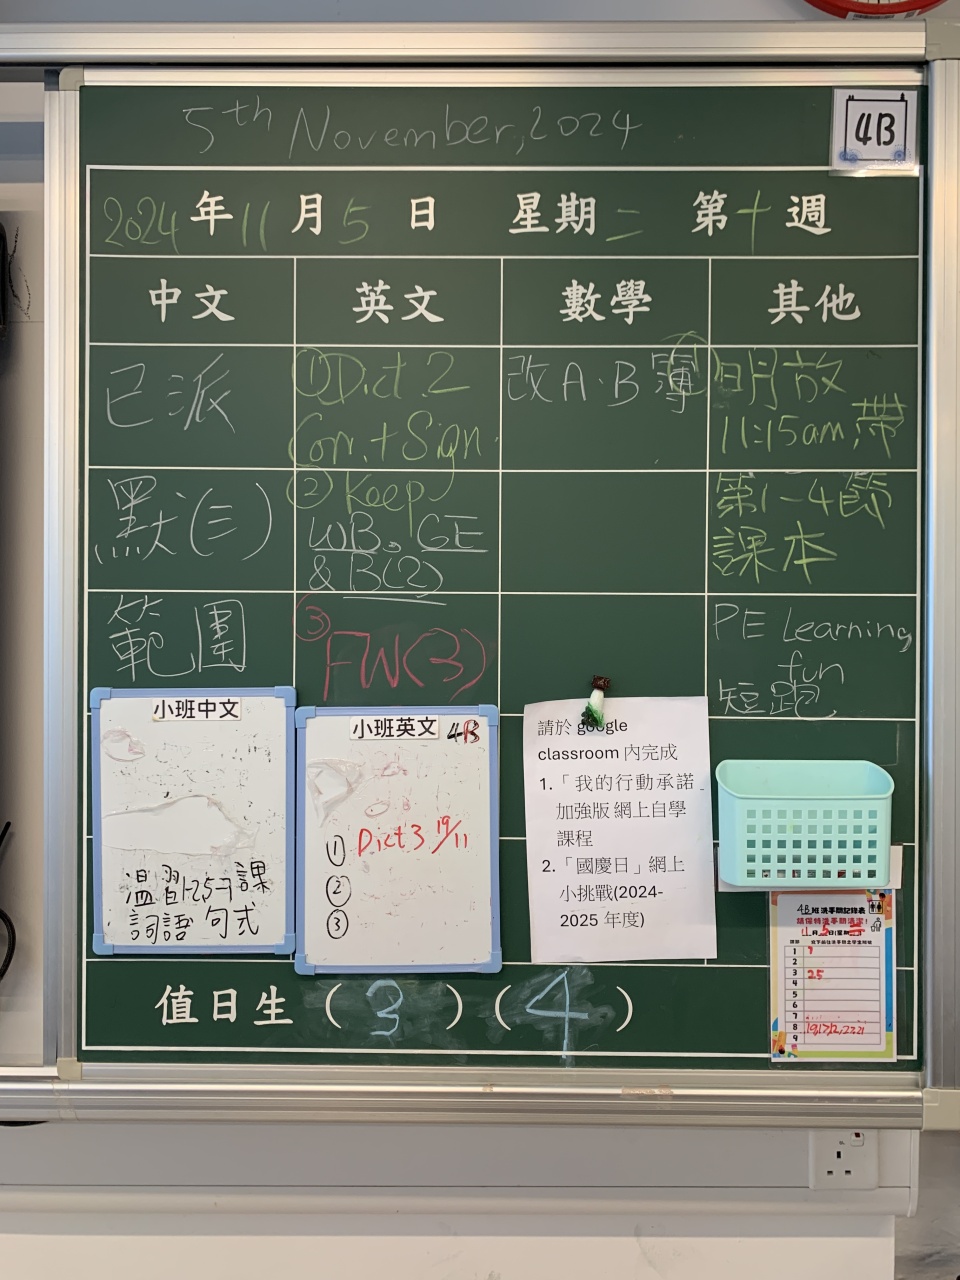 5th November, 2024
4B
2024年11月5日 星期二 第十週
中文
英文
數學
其他
已派
默(三)
範圍
①Dict. 2
Corr. + Sign.
②Keep
WB, GE
& B(2)
③
FW(3)
改A.B簿
①明放
11:15am,帶
第1-4節
課本
PE Learning
fun
短跑
小班中文
溫習1-2,5-7課
詞語 句式
小班英文 4B
① Dict 3 19/11
②
③
請於 google
classroom 內完成
1.「我的行動承諾
加強版 網上自學
課程
2.「國慶日」網上
小挑戰(2024-
2025 年度)
4B班洗手間記錄表
請保持洗手間清潔!
11月5日(星期二)
1
2
3 25
4
5
6
7
8
9
值日生(3)(4)